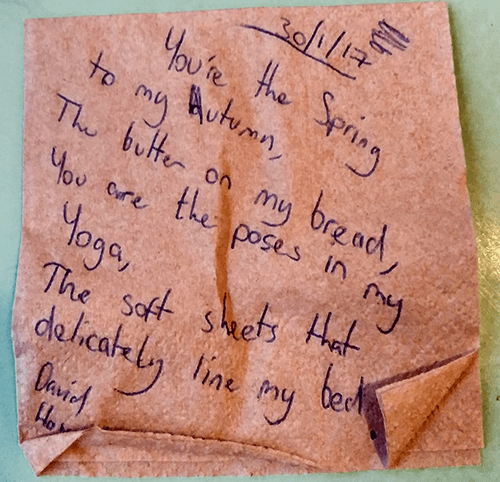 30/1/17
You're the Spring
to my Autumn,
The butter on my bread,
You are the poses in my
Yoga,
The soft sheets that
delicately line my bed
David